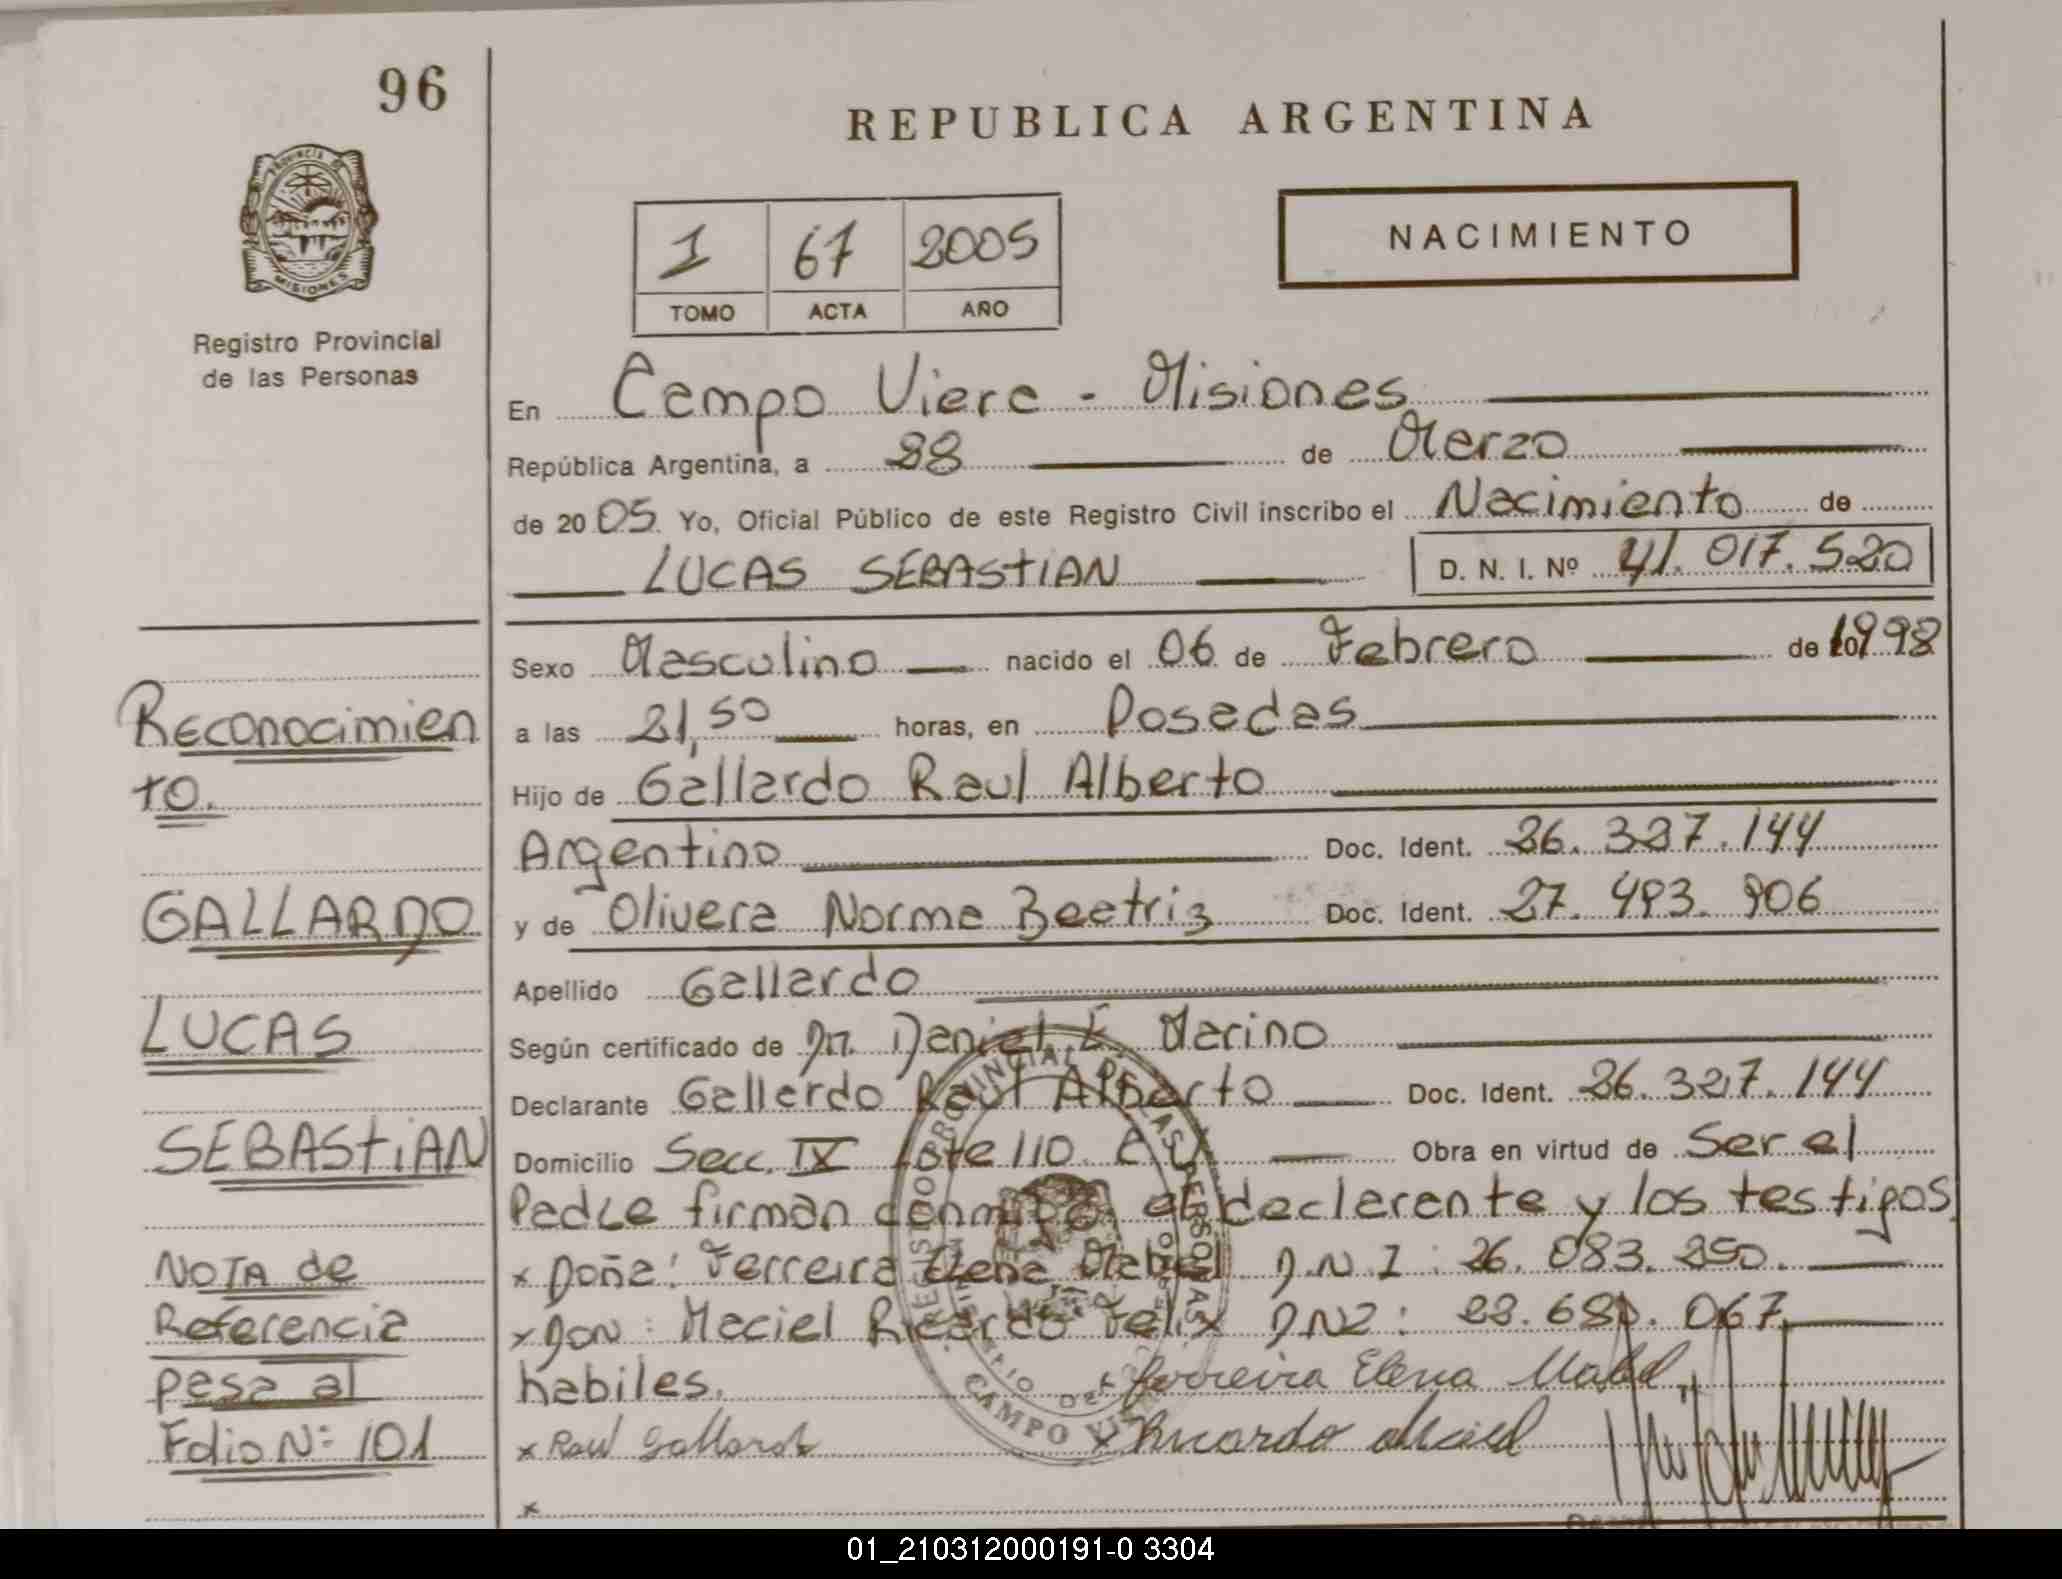 96
REPUBLICA ARGENTINA
PROVINCIA DE
MISIONES
Registro Provincial
de las Personas
1 67 2005
TOMO ACTA AÑO
NACIMIENTO
En Campo Viera - Misiones
República Argentina, a 28 de Marzo
de 2005 Yo, Oficial Público de este Registro Civil inscribo el Nacimiento de
LUCAS SEBASTIAN D. N. I. Nº 41.017.520
Sexo Masculino nacido el 06 de Febrero de 1998
a las 21,50 horas, en Posadas
Hijo de Gallardo Raul Alberto
Argentino Doc. Ident. 26.327.144
y de Olivera Norma Beatriz Doc. Ident. 27.493.906
Apellido Gallardo
Según certificado de Dr. Daniel E. Marino
Declarante Gallardo Raul Alberto Doc. Ident. 26.327.144
Domicilio Secc. IX Lote 110. C.V Obra en virtud de Ser el
Padre firman conmigo el declarante y los testigos
x Doña: Ferreira Elena Mabel D.N.I: 26.083.250.
x Don: Maciel Ricardo Felix DNI: 067
habiles.
Ferreira Elena Mabel
x Raul Gallardo x Ricardo Maciel
x
Reconocimien
to.
GALLARDO
LUCAS
SEBASTiAN
NOTA de
Referencia
pasa al
Folio Nº: 101
REGISTRO PROVINCIAL DE LAS PERSONAS
CAMPO VIERA
01_210312000191-0 3304